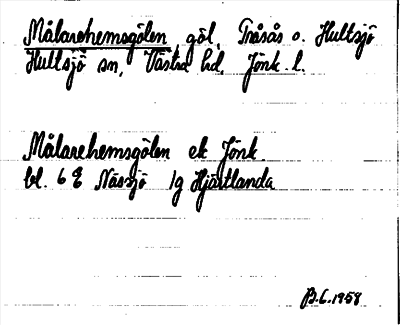 Målarehemsgölen göl, Tråsås o. Hultsjö
Hultsjö sn, Västra hd, Jönk. l.
Målarehemsgölen ek Jönk.
bl. 6 E Nässjö 1g Hjärtlanda
B.C. 1958